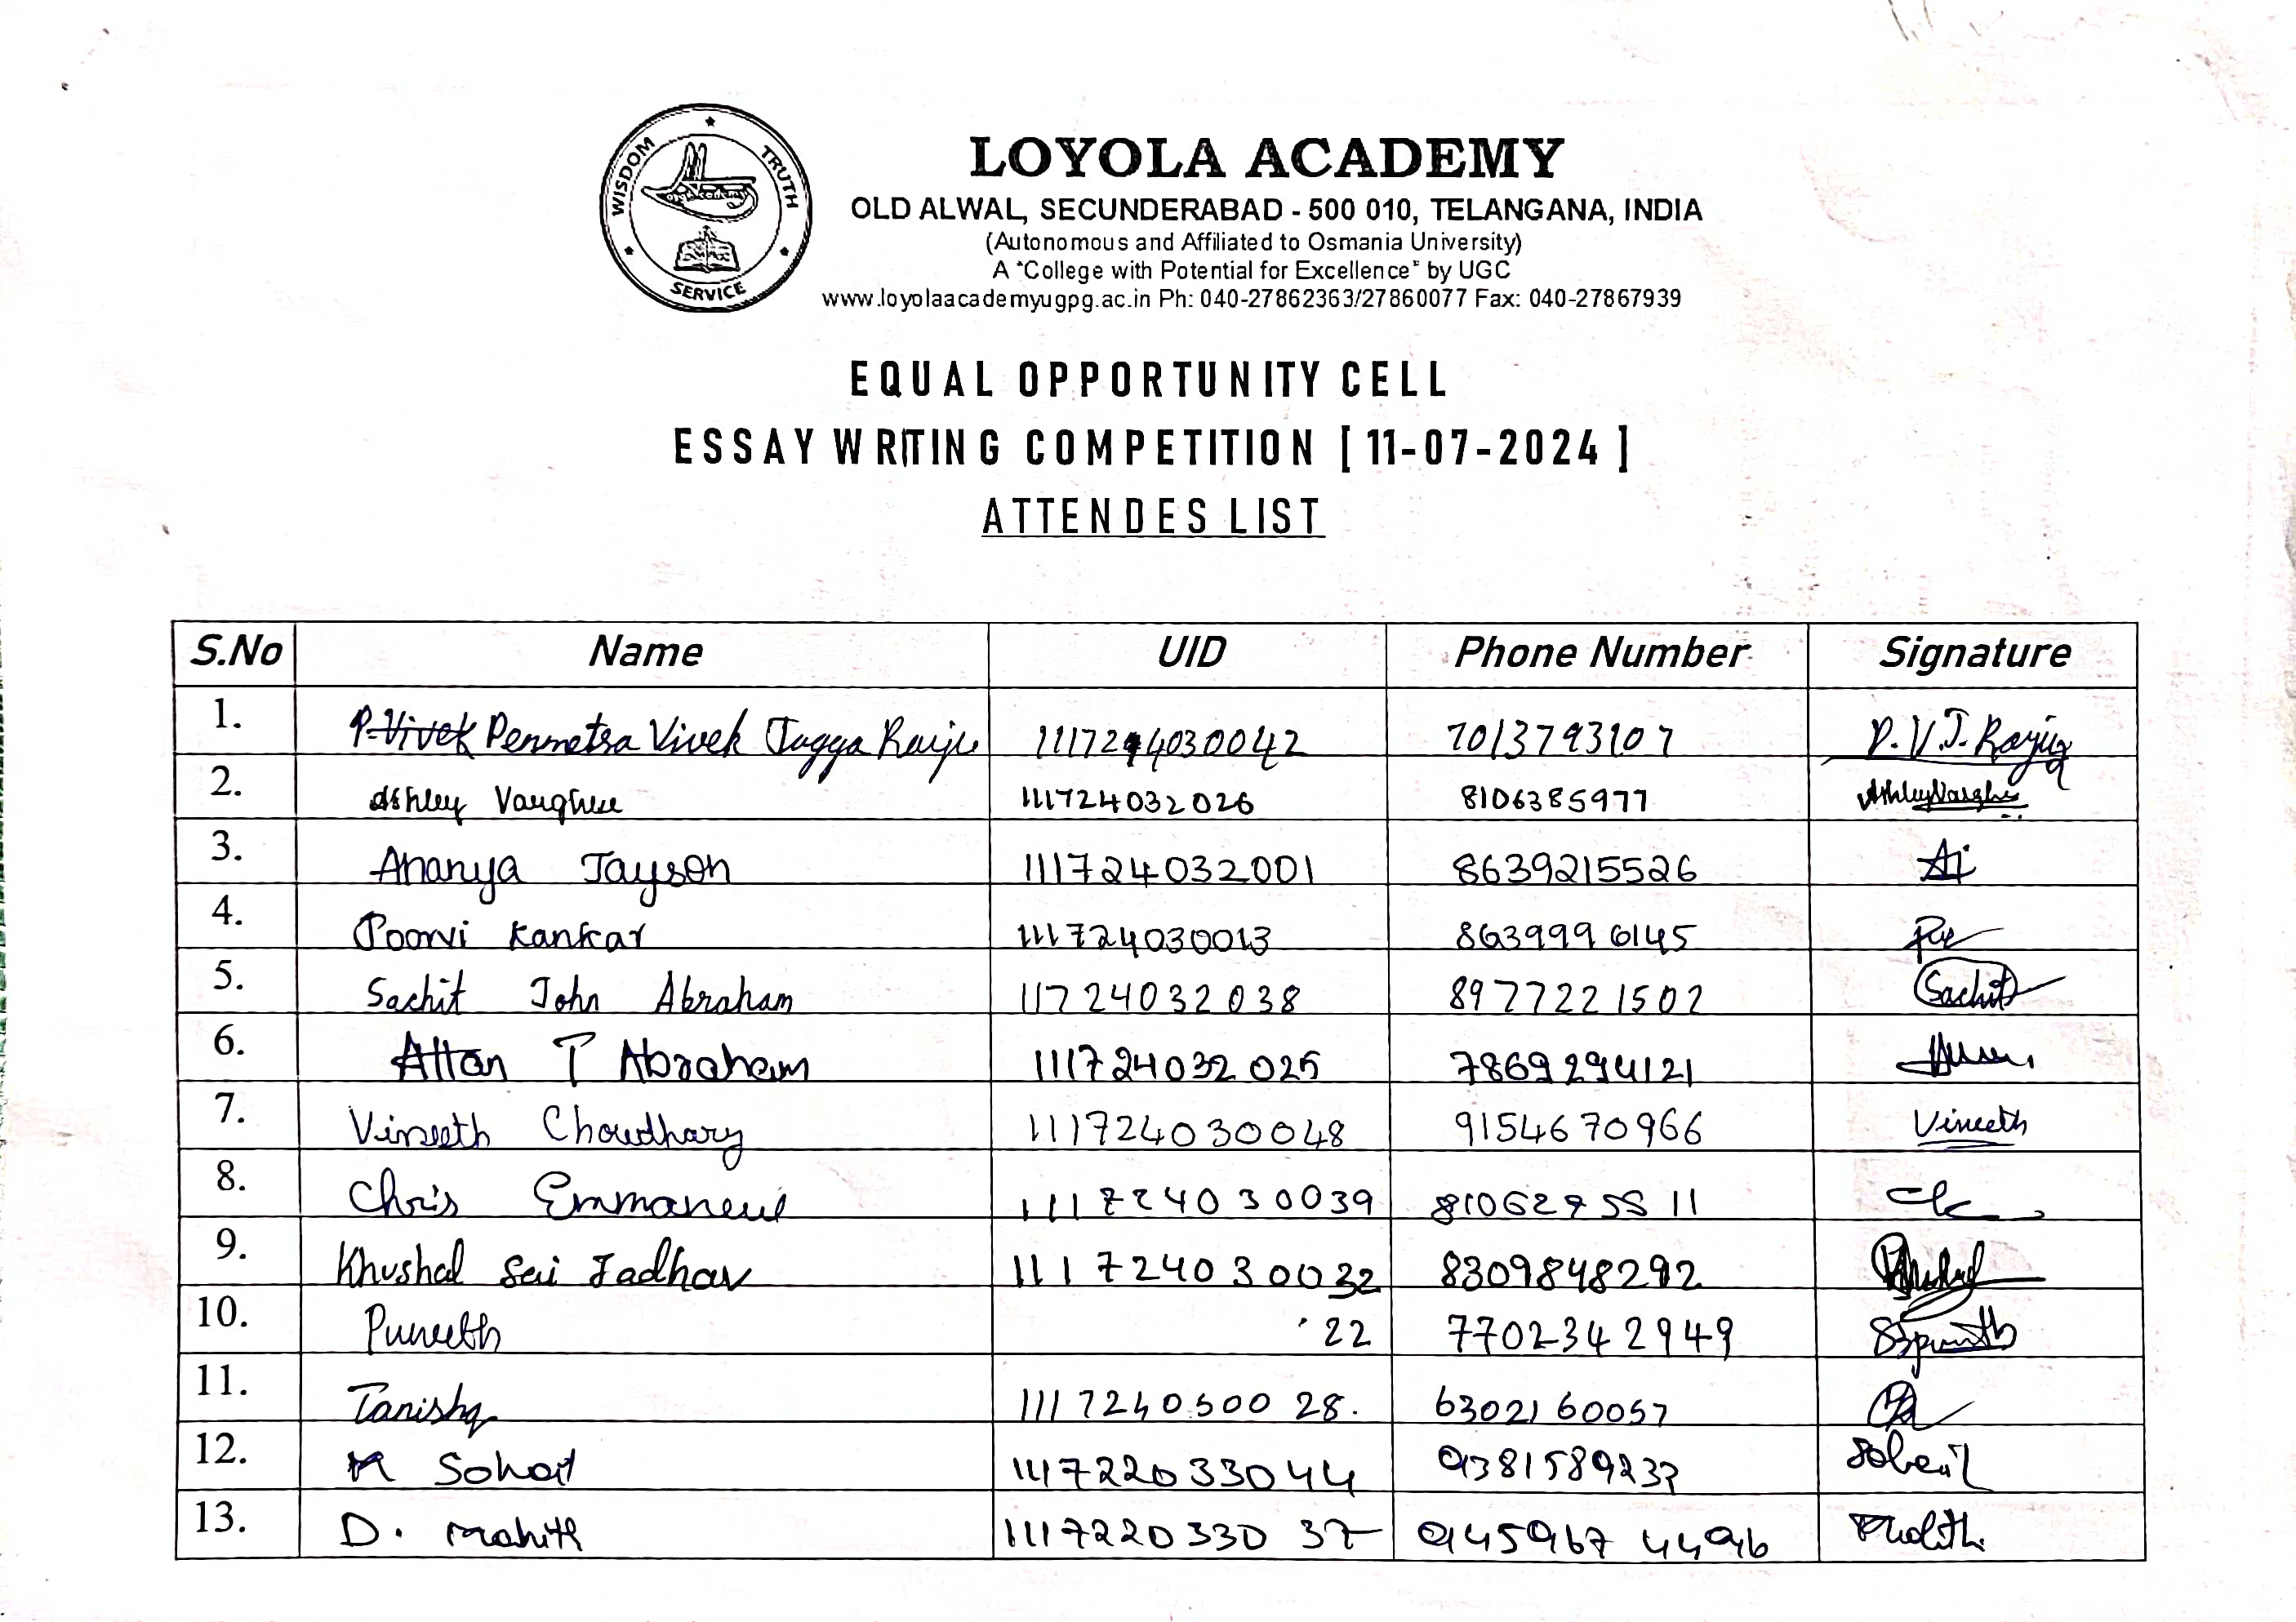 WISDOM TRUTH
SERVICE
LOYOLA ACADEMY
OLD ALWAL, SECUNDERABAD - 500 010, TELANGANA, INDIA
(Autonomous and Affiliated to Osmania University)
A "College with Potential for Excellence" by UGC
www.loyolaacademyugpg.ac.in Ph: 040-27862363/27860077 Fax: 040-27867939
EQUAL OPPORTUNITY CELL
ESSAY WRITING COMPETITION [ 11-07-2024 ]
ATTENDES LIST
S.No Name UID Phone Number Signature
1. P. Vivek Penmetsa Vivek Jagga Raiju 111724030042 7013793107 P.V.J. Rayju
2. Ashley Varghese 111724032026 8106385977 Ashley Varghese
3. Ananya Jayson 111724032001 8639215526
4. Poorvi Kankar 111724030013 8639996145
5. Sachit John Abraham 11724032038 8977221502 Sachit
6. Allan T Abraham 111724032025 7869294121
7. Vineeth Choudhary 111724030048 9154670966 Vineeth
8. Chris Emmaneul 111724030039 8106275511
9. Khushal Sai Jadhav 111724030032 8309848292
10. Puneeth '22 7702342949
11. Tanishq 111724050028. 6302160057
12. K Sohail 111722033044 9381589237 Sohail
13. D. Mohith 111722033037 9145967 4496 Mohith